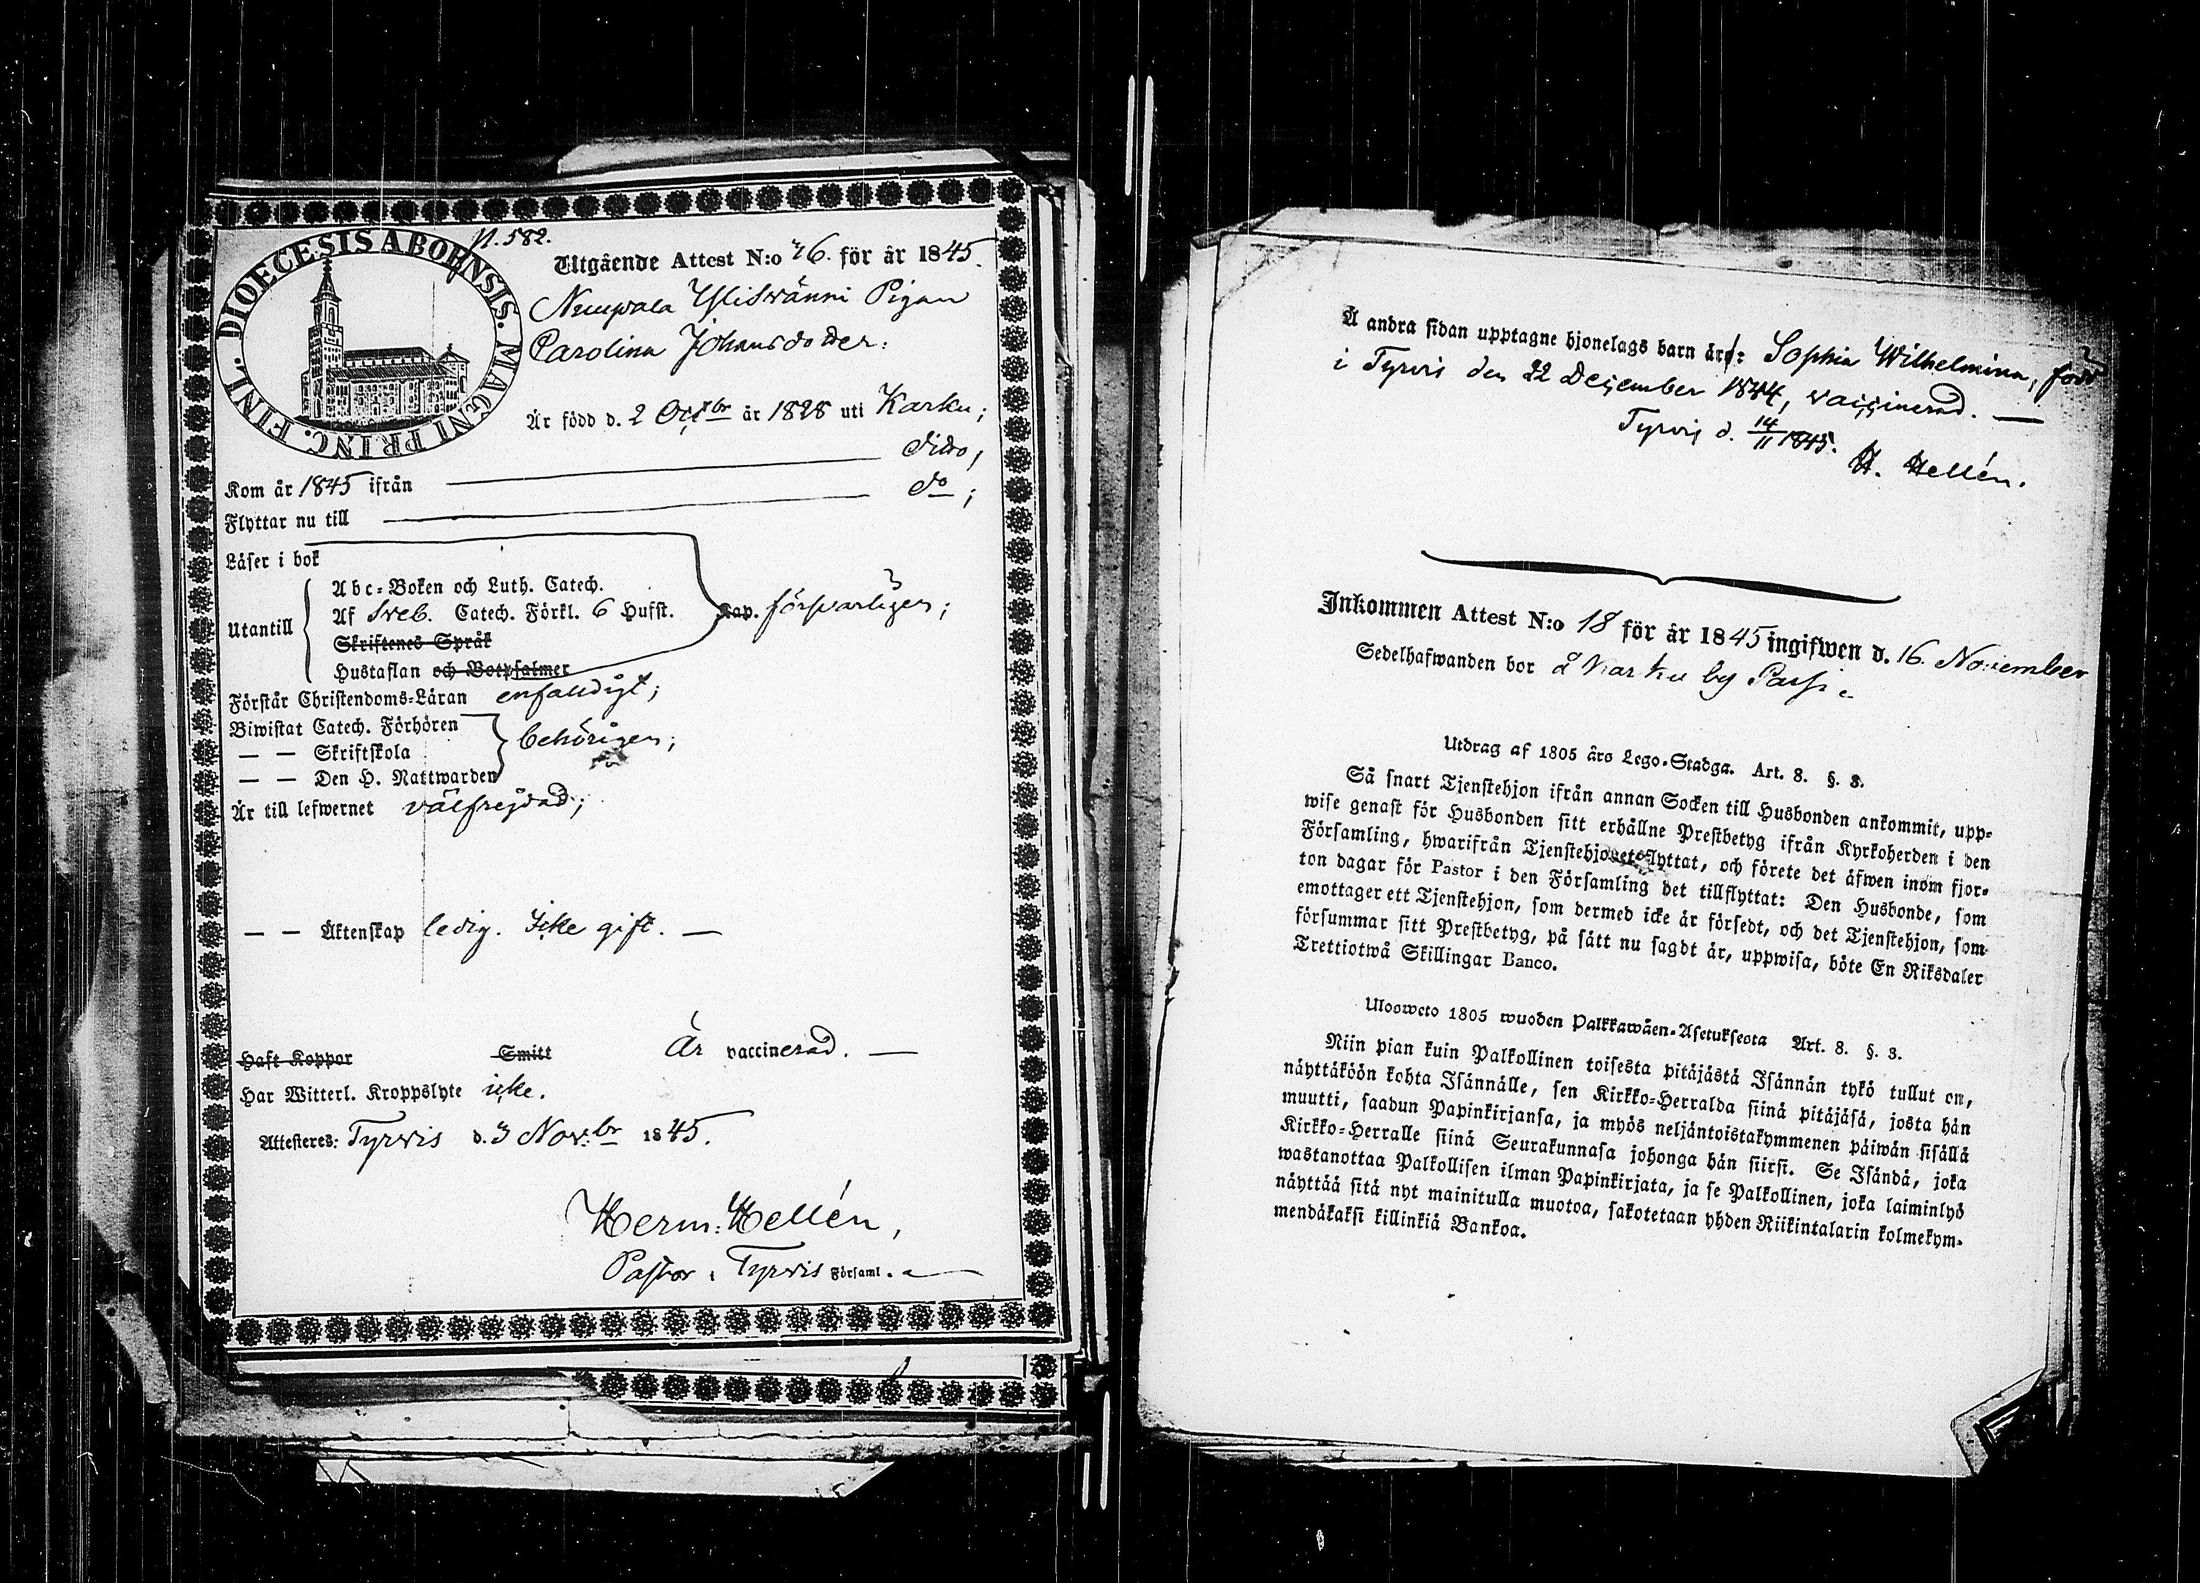 DIOECESIS ABOENSIS. MAGNI PRINC. FINL.
p. 582.
Utgående Attest N:o 76. för år 1845.
Yliswänni Pigan
Carolina Johansdotter:
Är född d. 2 Octbr år 1828 uti Karku;
Kom år 1845 ifrån — dito,
Flyttar nu till — do;
Läser i bok
Utantill
Abc-Boken och Luth. Catech.
Af Sveb. Catech. Förkl. 6 Hufst.
Skriftenes Språk
Hustaflan och Botpsalmer
Kap. försvarligen;
Förstår Christendoms-Läran enfaldigt;
Biwistat Catech. Förhören
— — Skriftskola
— — Den H. Nattwarden
behörigen;
Är till lefwernet välfrejdad;
— — Äktenskap ledig. Icke gift. —
Haft Koppor Smitt Är vaccinerad. —
Har Witterl. Kroppslyte icke.
Attesteres: Tyrvis d. 3 Nov:br 1845.
Herm: Hellén,
Pastor i Tyrvis Församl.
Å andra sidan upptagne hjonelags barn är: Sophia Wilhelmina, född
i Tyrvis den 22 December 1844, vaccinerad. —
Tyrvis d. 14/11 1845.
H. Hellén.
Inkommen Attest N:o 18 för år 1845 ingifwen d. 16. November
Sedelhafwanden bor å Karku by
Utdrag af 1805 års Lego-Stadga. Art. 8. §. 3.
Så snart Tjenstehjon ifrån annan Socken till Husbonden ankommit, upp-
wise genast för Husbonden sitt erhållne Prestbetyg ifrån Kyrkoherden i den
Församling, hwarifrån Tjenstehjonet flyttat, och förete det äfwen inom fjor-
ton dagar för Pastor i den Församling det tillflyttat: Den Husbonde, som
emottager ett Tjenstehjon, som dermed icke är försedt, och det Tjenstehjon, som
försummar sitt Prestbetyg, på sätt nu sagdt är, uppwisa, böte En Riksdaler
Trettiotwå Skillingar Banco.
Ulosweto 1805 wuoden Palkkawäen-Asetuksesta Art. 8. §. 3.
Niin pian kuin Palkollinen toisesta pitäjästä Isännän tykö tullut on,
näyttäköön kohta Isännälle, sen Kirkko-Herralda siinä pitäjäsä, josta hän
muutti, saadun Papinkirjansa, ja myös neljäntoistakymmenen päiwän sisällä
Kirkko-Herralle siinä Seurakunnasa johonga hän siirsi. Se Isändä, joka
wastanottaa Palkollisen ilman Papinkirjata, ja se Palkollinen, joka laiminlyö
näyttää sitä nyt mainitulla muotoa, sakotetaan yhden Riikintalarin kolmekym-
mendäkaksi killinkiä Bankoa.